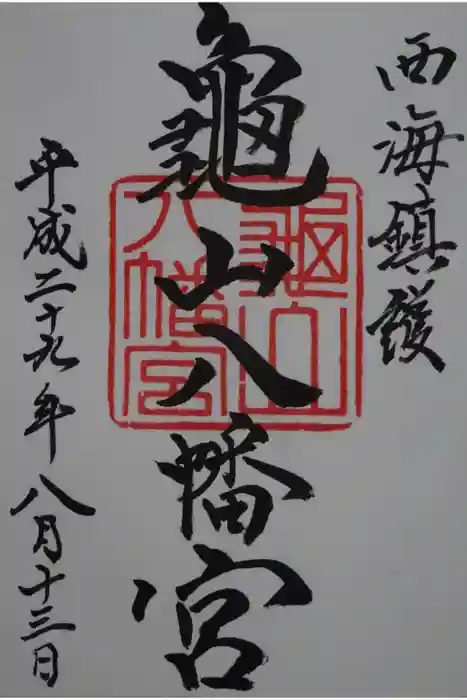 西海鎮發
龜山八幡宮
龜山
八幡宮
平成二十九年八月十三日